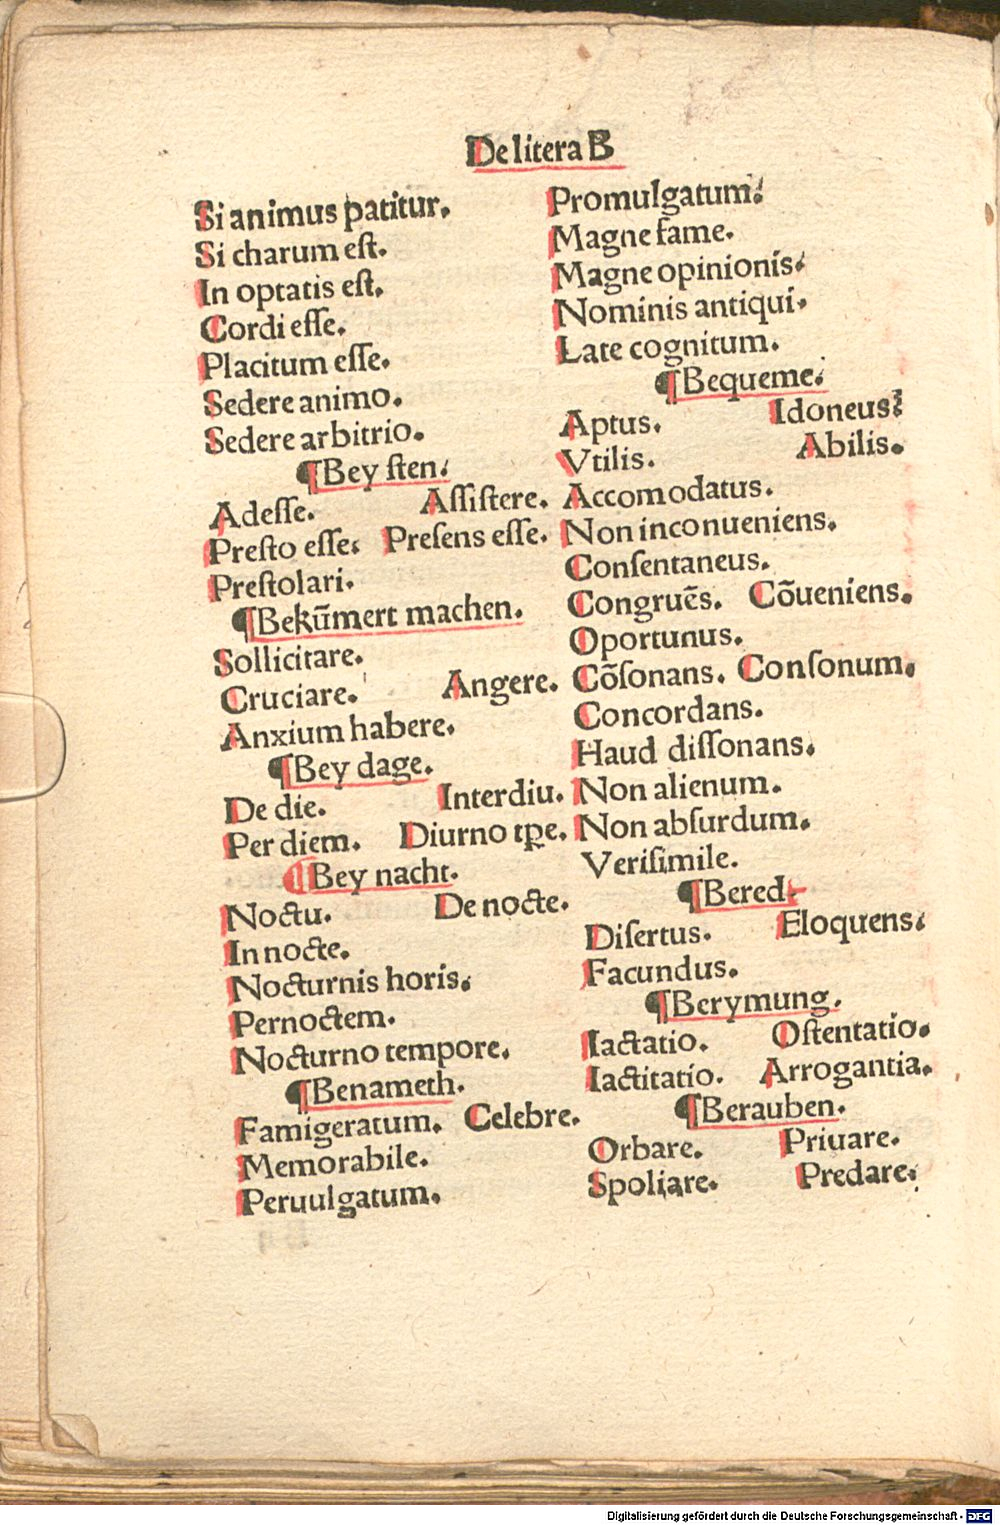 De litera B
Si animus patitur.
Si charum est.
In optatis est.
Cordi esse.
Placitum esse.
Sedere animo.
Sedere arbitrio.
¶Bey sten.
Adesse. Assistere.
Presto esse. Presens esse.
Prestolari.
¶Bekūmert machen.
Sollicitare.
Cruciare. Angere.
Anxium habere.
¶Bey dage.
De die. Interdiu.
Per diem. Diurno tꝑe.
¶Bey nacht.
Noctu. De nocte.
In nocte.
Nocturnis horis.
Pernoctem.
Nocturno tempore.
¶Benameth.
Famigeratum. Celebre.
Memorabile.
Peruulgatum.
Promulgatum.
Magne fame.
Magne opinionis.
Nominis antiqui.
Late cognitum.
¶Bequeme.
Aptus. Idoneus.
Vtilis. Abilis.
Accomodatus.
Non inconueniens.
Consentaneus.
Congruēs. Cōueniens.
Oportunus.
Cōsonans. Consonum.
Concordans.
Haud dissonans.
Non alienum.
Non absurdum.
Verisimile.
¶Bered.
Disertus. Eloquens.
Facundus.
¶Berymung.
Iactatio. Ostentatio.
Iactitatio. Arrogantia.
¶Berauben.
Orbare. Priuare.
Spoliare. Predare.
Digitalisierung gefördert durch die Deutsche Forschungsgemeinschaft - DFG